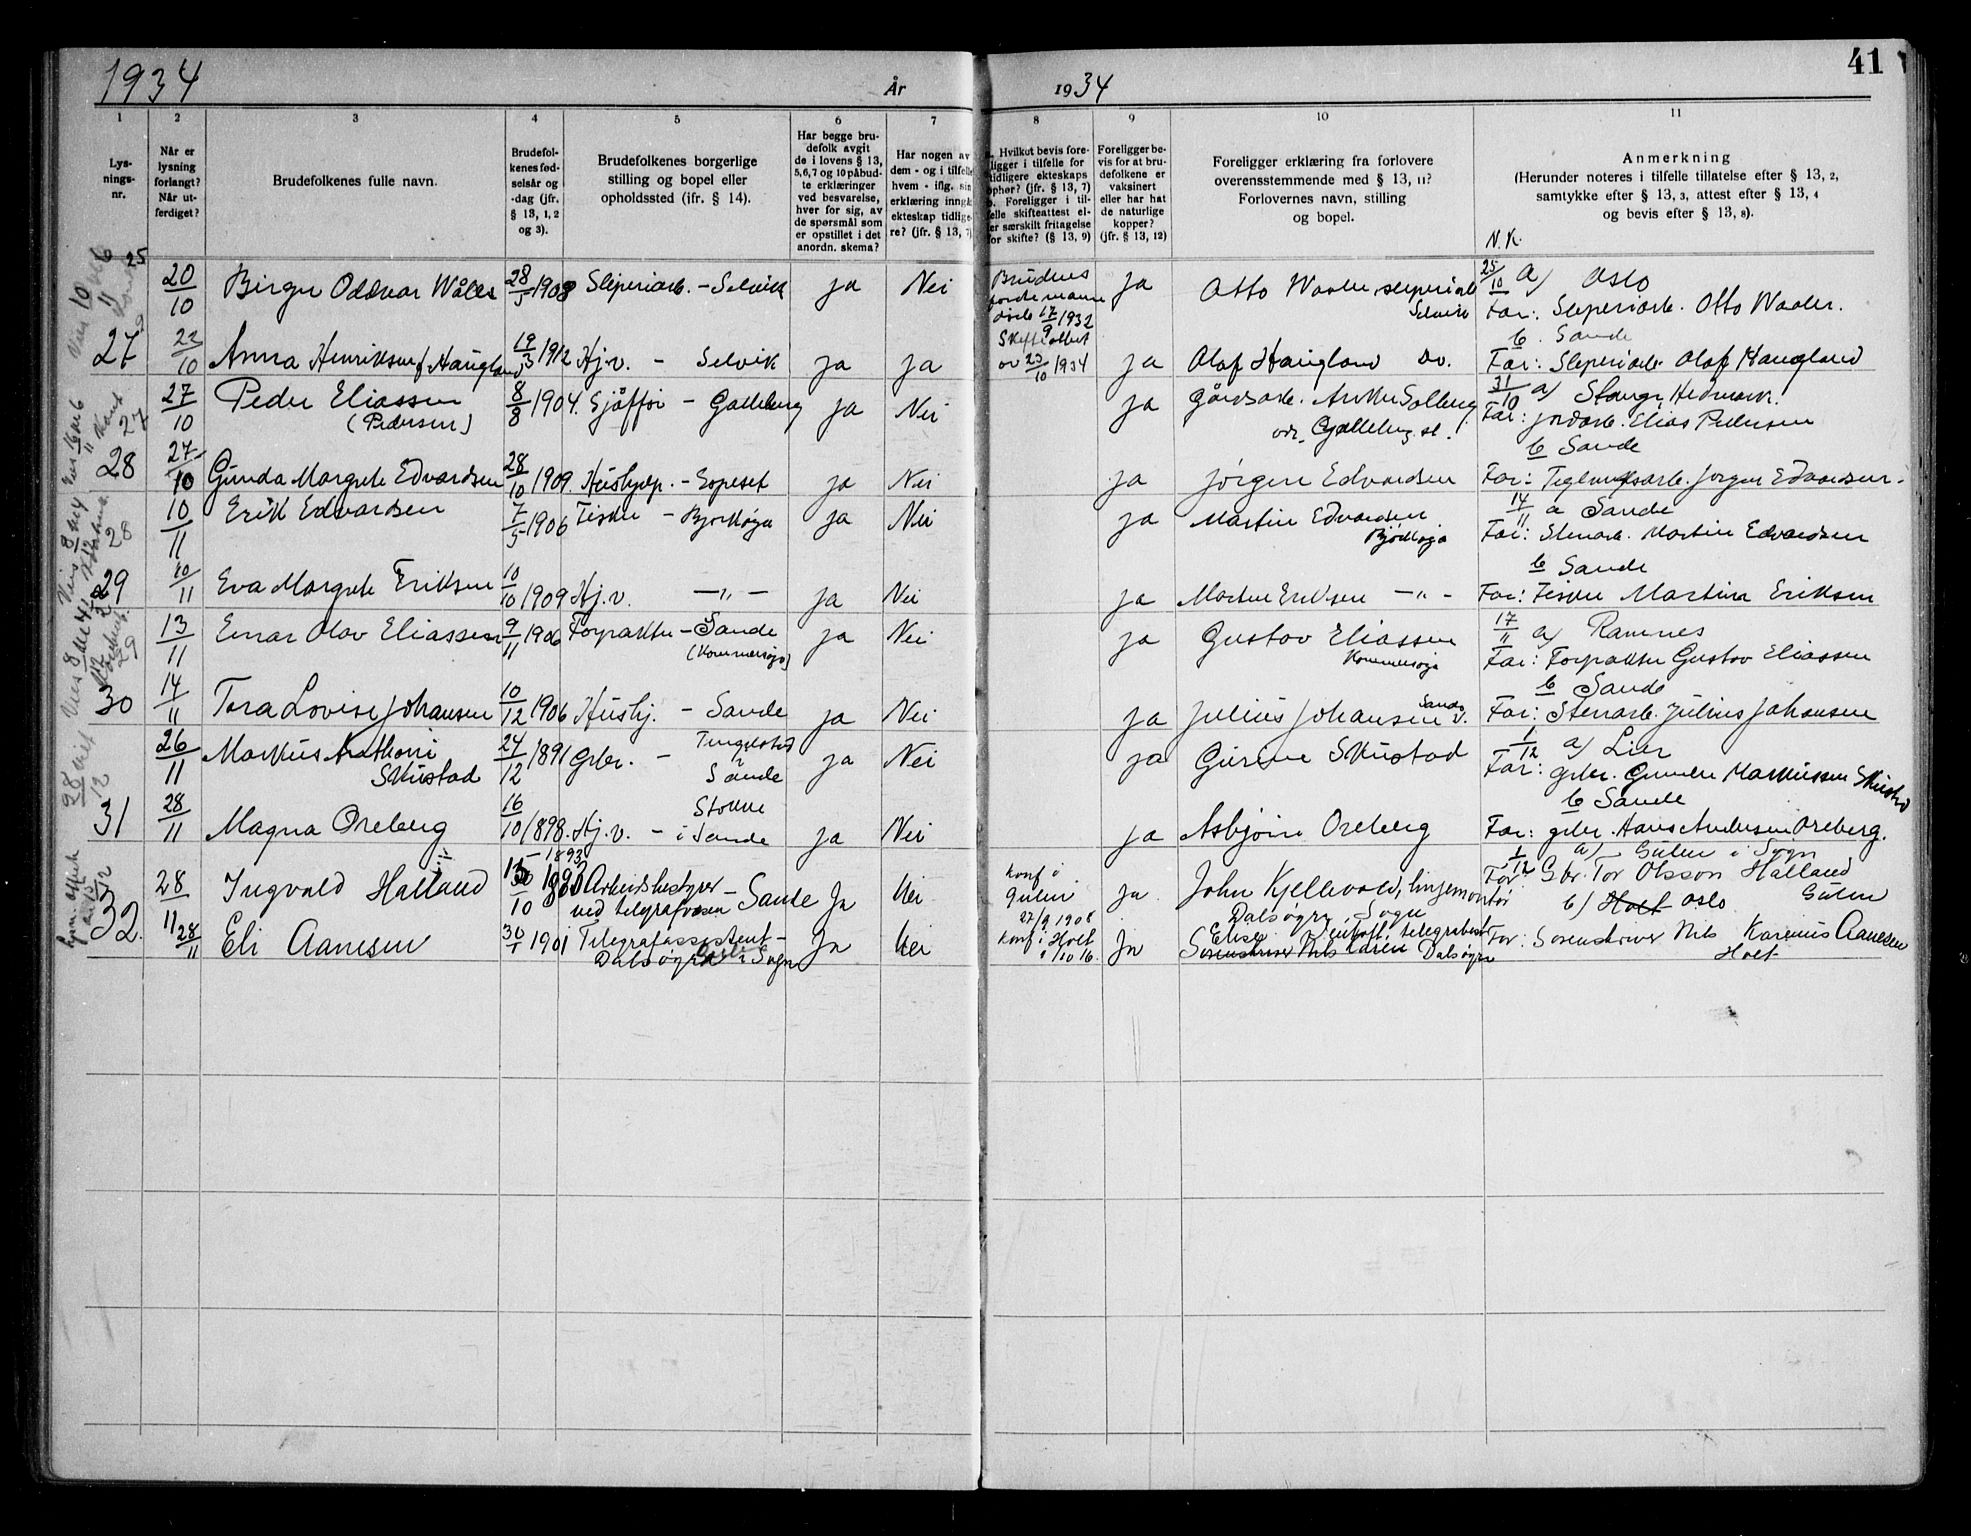 41
1934
År
1934
1 2 3 4 5 6 7 8 9 10 11
Lys-
nings-
nr.
Når er
lysning
forlangt?
Når ut-
ferdiget?
Brudefolkenes fulle navn.
Brudefol-
kenes fød-
selsår og
-dag (jfr.
§ 13, 1, 2
og 3).
Brudefolkenes borgerlige
stilling og bopel eller
opholdssted (jfr. § 14).
Har begge bru-
defolk avgit
de i lovens § 13,
5,6,7 og 10 påbud-
te erklæringer
ved besvarelse,
hver for sig, av
de spørsmål som
er opstillet i det
anordn. skema?
Har nogen av
dem - og i tilfelle
hvem - iflg. sin
erklæring inngåt
ekteskap tidlige-
re? (jfr. § 13, 7)
Hvilkut bevis fore-
ligger i tilfelle for
tidligere ekteskaps
ophør? (jfr. § 13, 7)
b. Foreligger i til-
felle skifteattest el-
er særskilt fritagelse
for skifte? (§ 13, 9)
Foreligger be-
vis for at bru-
defolkene er
vaksinert
eller har hat
de naturlige
kopper?
(jfr. § 13, 12)
Foreligger erklæring fra forlovere
overensstemmende med § 13, 11?
Forlovernes navn, stilling
og bopel.
Anmerkning
(Herunder noteres i tilfelle tillatelse efter § 13, 2,
samtykke efter § 13, 3, attest efter § 13, 4
og bevis efter § 13, 8).
N.K.
20/10 Birger Oddvar Wåler 28/5 1908 Sliperiarb. - Selvik ja Nei Brudens ja Otto Waaler, sliperiarb. Selvik 25/10 a) Oslo
17/9 1932 Far: Sliperiarb. Otto Waaler.
b. Sande
27 22/10 Anna Henriksen f. Haugland 19/3 1912 Hj.v. - Selvik ja ja av 23/10 1934 ja Olaf Haugland Do. Far: Sliperiarb. Olaf Haugland
27/10 Peder Eliassen (Pedersen) 8/8 1904. Sjåffør - Galleberg ja Nei ja Gårdsarb. Solberg Galleberg st. 31/10 a) Stange, Hedmark.
Far: jordarb. Elias Pedersen
b Sande
28 27/10 Gunda Margrete Edvardsen 28/10 1909. Hushjelp. - ja Nei ja Jörgen Edvardsen Far: Teglverksarb. Jørgen Edvardsen.
10/11 Erik Edvardsen 7/5 1906 Fisker - Bjørkøya ja Nei ja Martin Edvardsen Bjørkøya 14/11 a Sande
Far: Stenarb. Martin Edvardsen
b Sande
29 10/11 Eva Margrete Eriksen 10/10 1909 Hj.v. — " — ja Nei ja Martin Eriksen — " - Far: Fisker Martin Eriksen
13/11 Einar Olav Eliassen 9/11 1906 Forpakter - Sande (Kommersøya) ja Nei ja Gustav Eliassen Kommersøya 17/11 a) Ramnes
Far: Forpakter Gustav Eliassen
b Sande
30 14/11 Tora Lovise Johansen 10/12 1906 Hushj. - Sande ja Nei ja Julius Johansen Sande v. Far: Stenarb. Julius Johansen
26/11 Markus Anthoni Skustad 24/12 1891 Grbr. - Sande ja Nei ja Gusine Skustad 1/12 a) Lier
Far: grbr. Gunder Markussen Skustad
b Sande
31 28/11 Magna Oreberg 16/10 1898. Hj.v. - Stokke i Sande ja Nei ja Asbjørn Oreberg Far: grbr. Hans Andersen Oreberg.
28/11 Ingvald Halland 1893 Arbeidsbestyrer ved telegrafvesen - Sande Ja Nei Konf i Gulen 27/9 1908 ja John Kjellevold, linjemontør Dalsøyra, Sogn 1/12 a) Gulen i Sogn
Far: Gbr. Tor Olsson Halland Gulen
b) Holt Oslo
32. 28/11 Eli Aanesen 30/1 1901 Telegrafassistent - Dalsøyra i Sogn Ja Nei Konf i Holt 1/10 16. Ja Elise telegrafbest. Sorenskriver Nils Dalsøyra Far: Sorenskriver Nils Karenius Aanesen
Holt